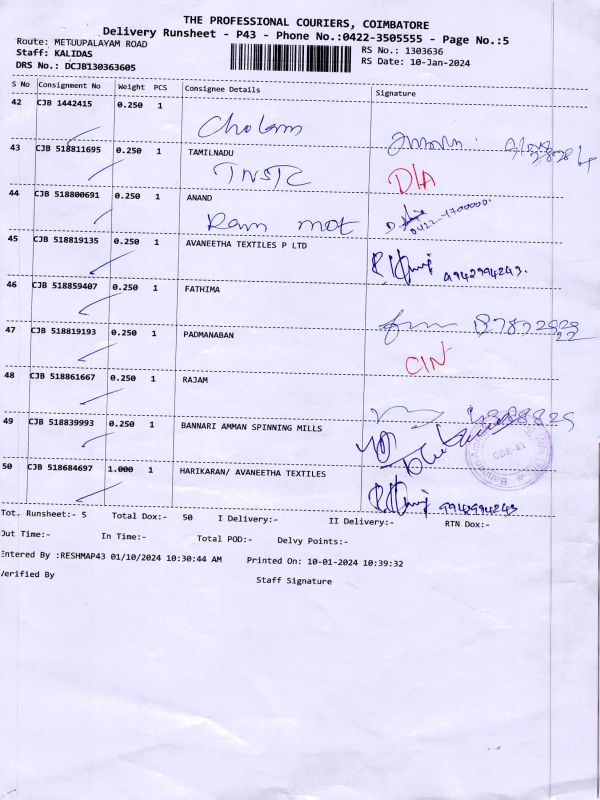 THE PROFESSIONAL COURIERS, COIMBATORE
Delivery Runsheet - P43 - Phone No.:0422-3505555 - Page No.:5
Route: METUUPALAYAM ROAD
Staff: KALIDAS
RS No.: 1303636
DRS No.: DCJB130363605
RS Date: 10-Jan-2024
S No Consignment No Weight PCS Consignee Details Signature
42 CJB 1442415 0.250 1
Cholam
43 CJB 518811695 0.250 1 TAMILNADU
TNSTC D/A
44 CJB 518800691 0.250 1 ANAND
Ram
45 CJB 518819135 0.250 1 AVANEETHA TEXTILES P LTD
9942994243.
46 CJB 518859407 0.250 1 FATHIMA
47 CJB 518819193 0.250 1 PADMANABAN
CIN
48 CJB 518861667 0.250 1 RAJAM
49 CJB 518839993 0.250 1 BANNARI AMMAN SPINNING MILLS
CBE-43
50 CJB 518684697 1.000 1 HARIKARAN/ AVANEETHA TEXTILES
9942994243
Tot. Runsheet:- 5 Total Dox:- 50 I Delivery:- II Delivery:- RTN Dox:-
Out Time:- In Time:- Total POD:- Delvy Points:-
Entered By :RESHMAP43 01/10/2024 10:30:44 AM Printed On: 10-01-2024 10:39:32
Verified By Staff Signature